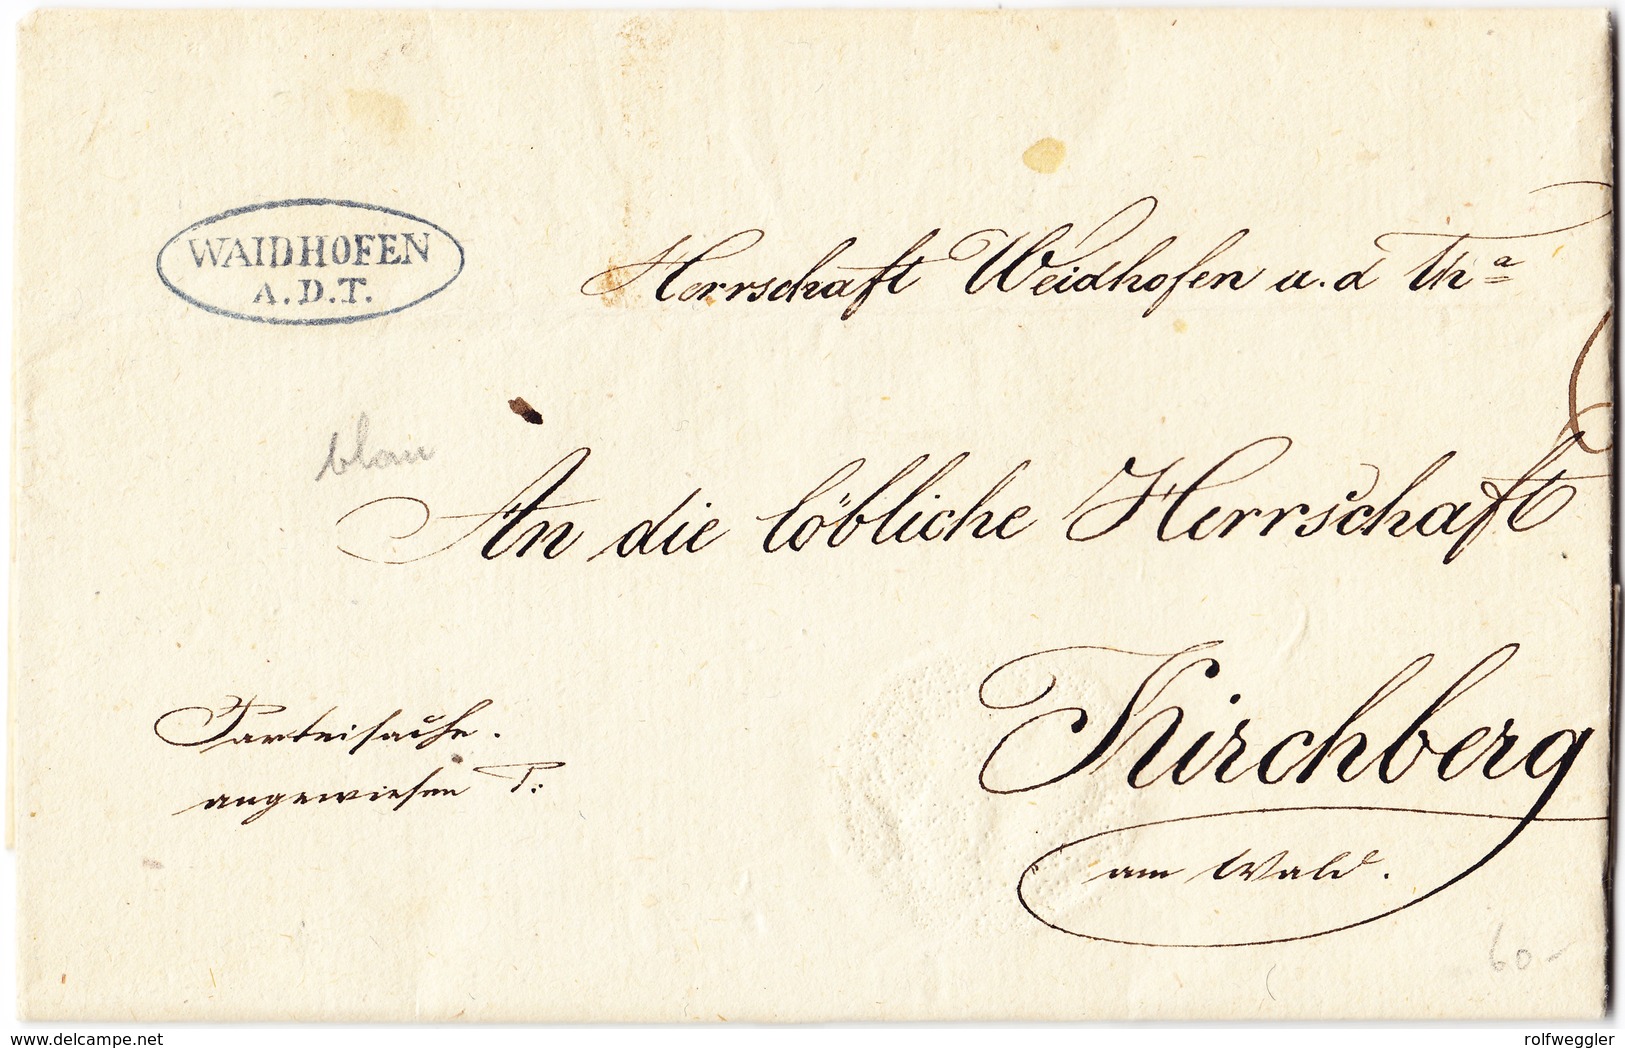 WAIDHOFEN
A.D.T.
Herrschaft Weidhofen a.d Thª
blau
An die löbliche Herrschaft
Kirchberg
am Wald.
Parteisache.
angewiesen P:
60-
www.delcampe.net
rolfweggler